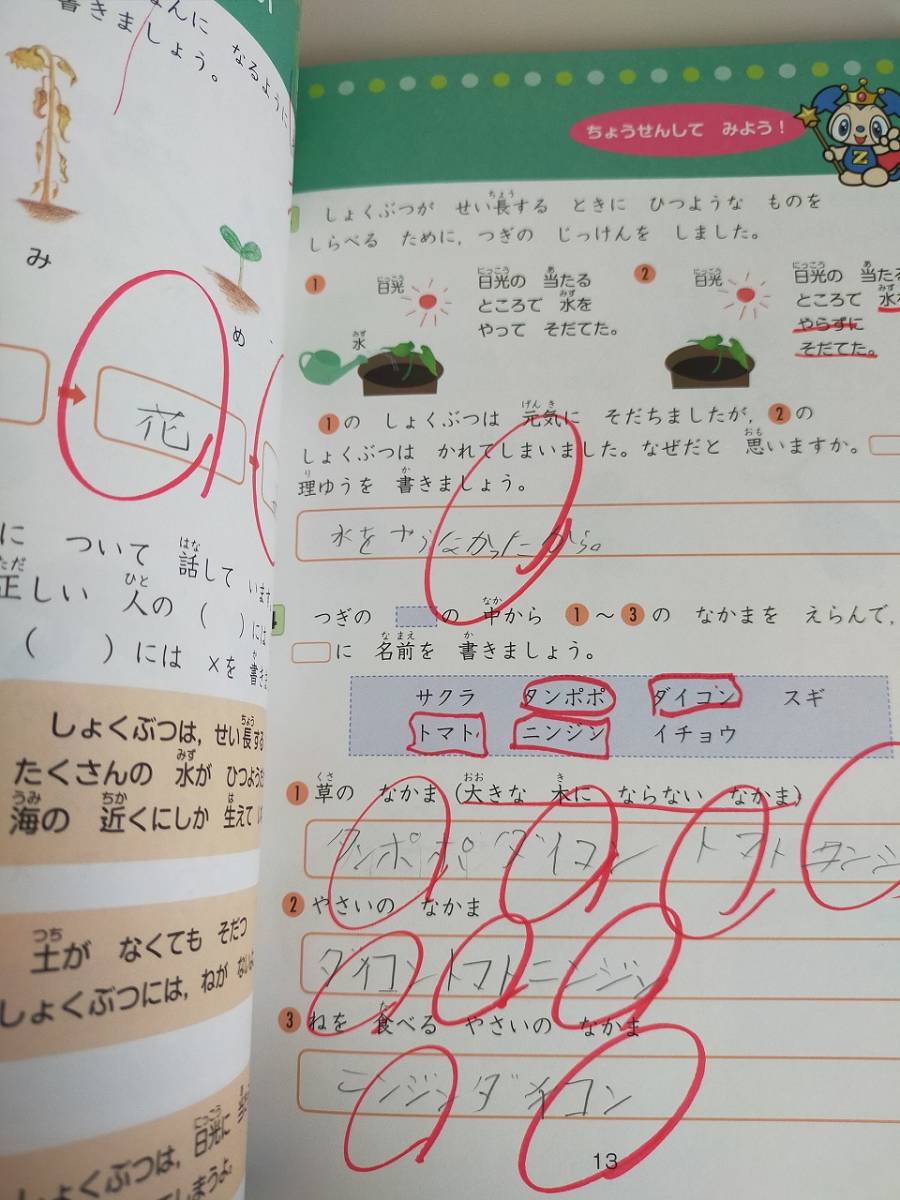 んに なるように
書きましょう。
み
め
花
に ついて 話して います
正しい 人の ( )には
( )には ×を 書き
しょくぶつは, せい長する
たくさんの 水が ひつよう
海の 近くにしか 生えて い
土が なくても そだつ
しょくぶつには, ねが ない
しょくぶつは, 日光に
しまうよ.
ちょうせんして みよう!
Z
しょくぶつが せい長する ときに ひつような ものを
しらべる ために, つぎの じっけんを しました。
1 日光 水 日光の 当たる
ところで 水を
やって そだてた。
2 日光 日光の 当たる
ところで 水を
やらずに
そだてた。
1の しょくぶつは 元気に そだちましたが, 2の
しょくぶつは かれてしまいました。なぜだと 思いますか。
理ゆうを 書きましょう。
水をやらなかったから。
4 つぎの の 中から 1〜3の なかまを えらんで,
に 名前を 書きましょう。
サクラ タンポポ ダイコン スギ
トマト ニンジン イチョウ
1 草の なかま (大きな 木に ならない なかま)
タンポポ ダイコン トマト
2 やさいの なかま
ダイコントマトニンジン
3 ねを 食べる やさいの なかま
ニンジンダイコン
13